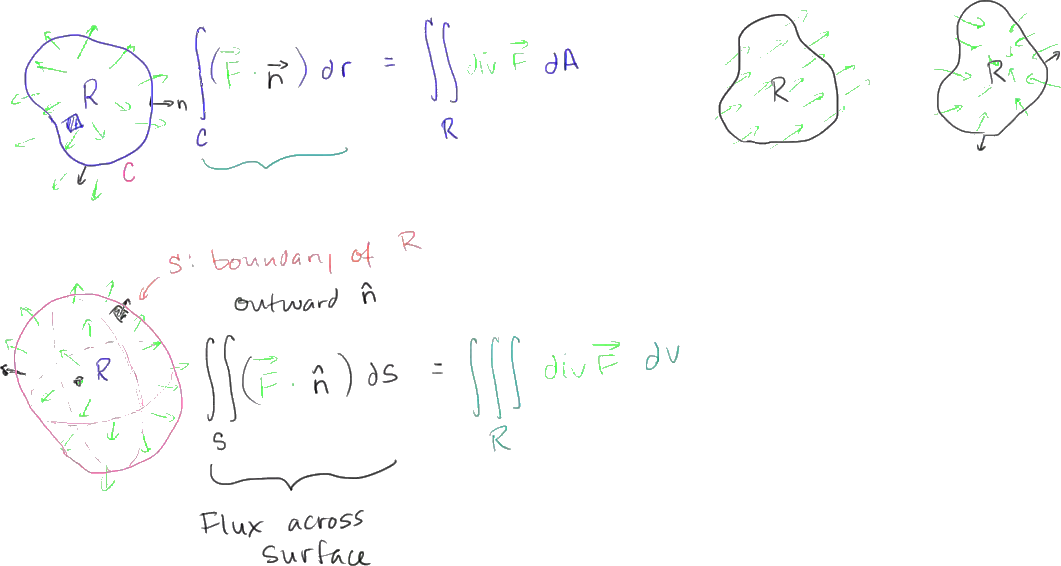 R
n
C
∫_C (F⃗ · n⃗) dr = ∬_R div F⃗ dA
R
R
S: boundary of R
outward n̂
R
∬_S (F⃗ · n̂) ds = ∭_R div F⃗ dV
Flux across
surface